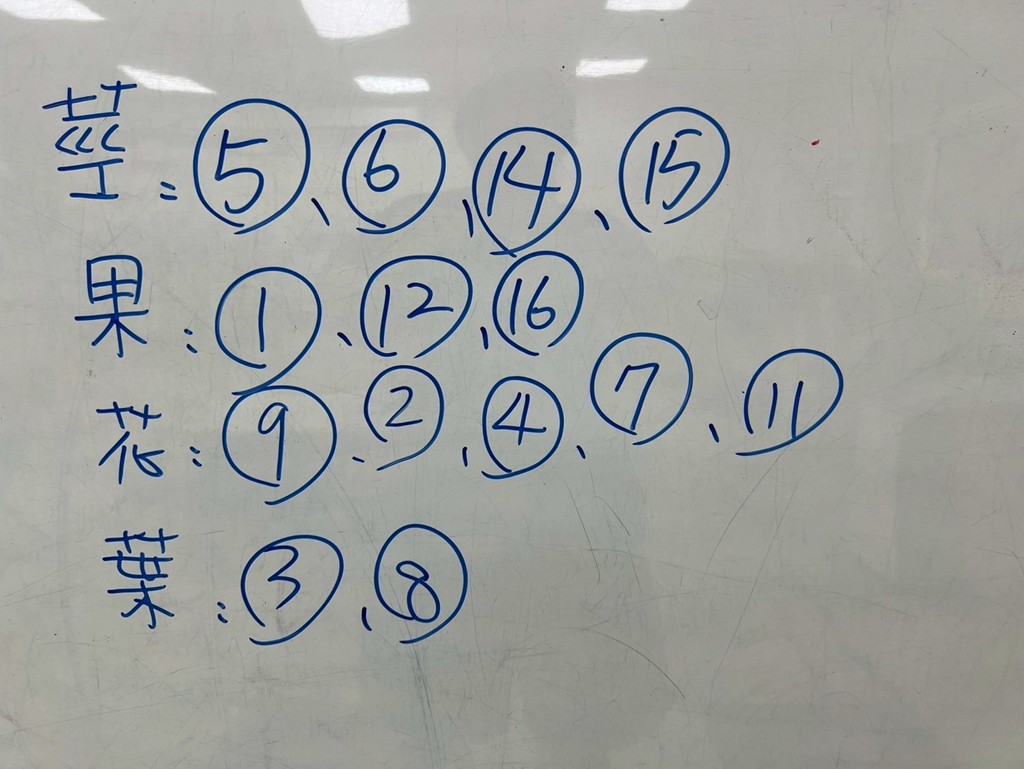 莖：⑤、⑥、⑭、⑮
果：①、⑫、⑯
花：⑨、②、④、⑦、⑪
葉：③、⑧